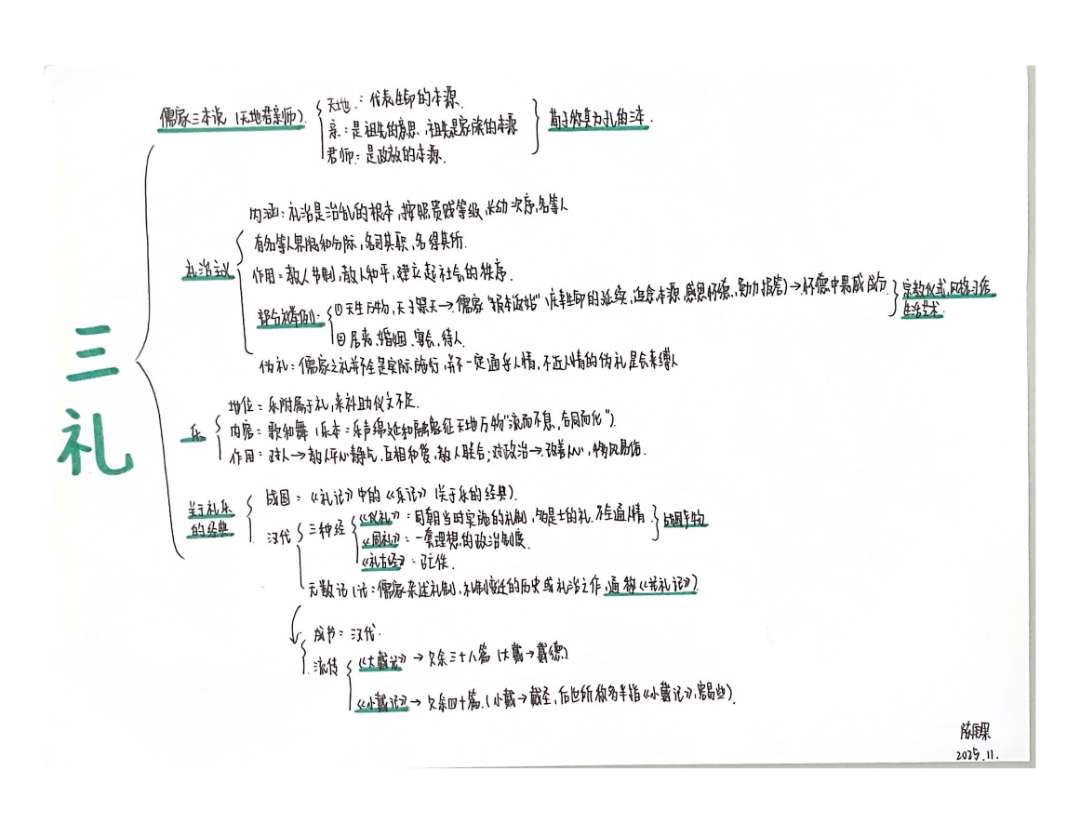 三礼
儒家三本说（天地君亲师）
天地：代表生命的本源
亲：是祖先的意思、祖先是家族的本源
君师：是政教的本源.
荀子称其为礼的三本.
礼治主义
内涵：礼治是治乱的根本，按照贵贱等级，长幼次序，各等人
有各等人界限和分际，各司其职，各得其所.
作用：教人节制，教人和平，建立起社会的秩序.
部分举例：
①天生万物，天子祭天→儒家"报本返始"（生命的延续，追念本源，感恩怀德，勠力报答）→怀德中
②居丧、婚姻、宴会、待人
宗教仪式，风俗习惯
生活艺术
伪礼：儒家之礼并不全是实际施行，并不一定通乎人情，不近人情的伪礼是会来缚人
乐
地位：乐附属于礼，来补助仪文不足.
内容：歌和舞（乐本：乐声绵延和融象征天地万物"流而不息，合同而化"）.
作用：对人→教人平心静气，互相和爱，教人联合；对政治→改善人心，移风易俗.
关于礼乐
的经典
战国：《礼记》中的《乐记》（关于乐的经典）.
汉代
三种经
《仪礼》：周朝当时实施的礼制，多是士的礼 不全通人情
《周礼》：一套理想的政治制度.
战国作物
《礼古经》：已亡佚.
无数记
儒家杂述礼制，礼制变迁的历史或礼治之作，通称《礼记》
成书：汉代.
流传
《大戴记》→欠余三十八篇（大戴→戴德）
《小戴记》→欠余四十篇.（小戴→戴圣，后世所称多半指《小戴记》，容易些）.
2025.11.